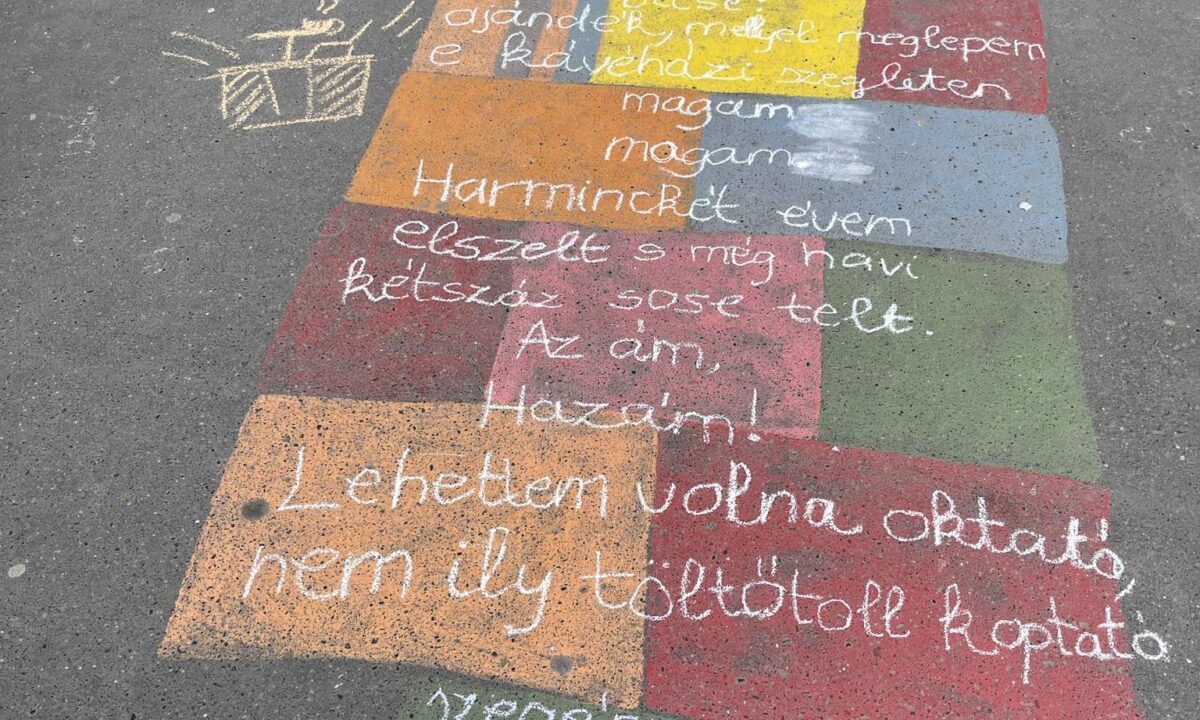 becse:
ajándék, mellyel meglepem
e kávéházi szegleten
magam
magam
Harminckét évem
elszelt s még havi
kétszáz sose telt.
Az ám,
Hazám!
Lehettem volna oktató,
nem ily töltőtoll koptató
szegé